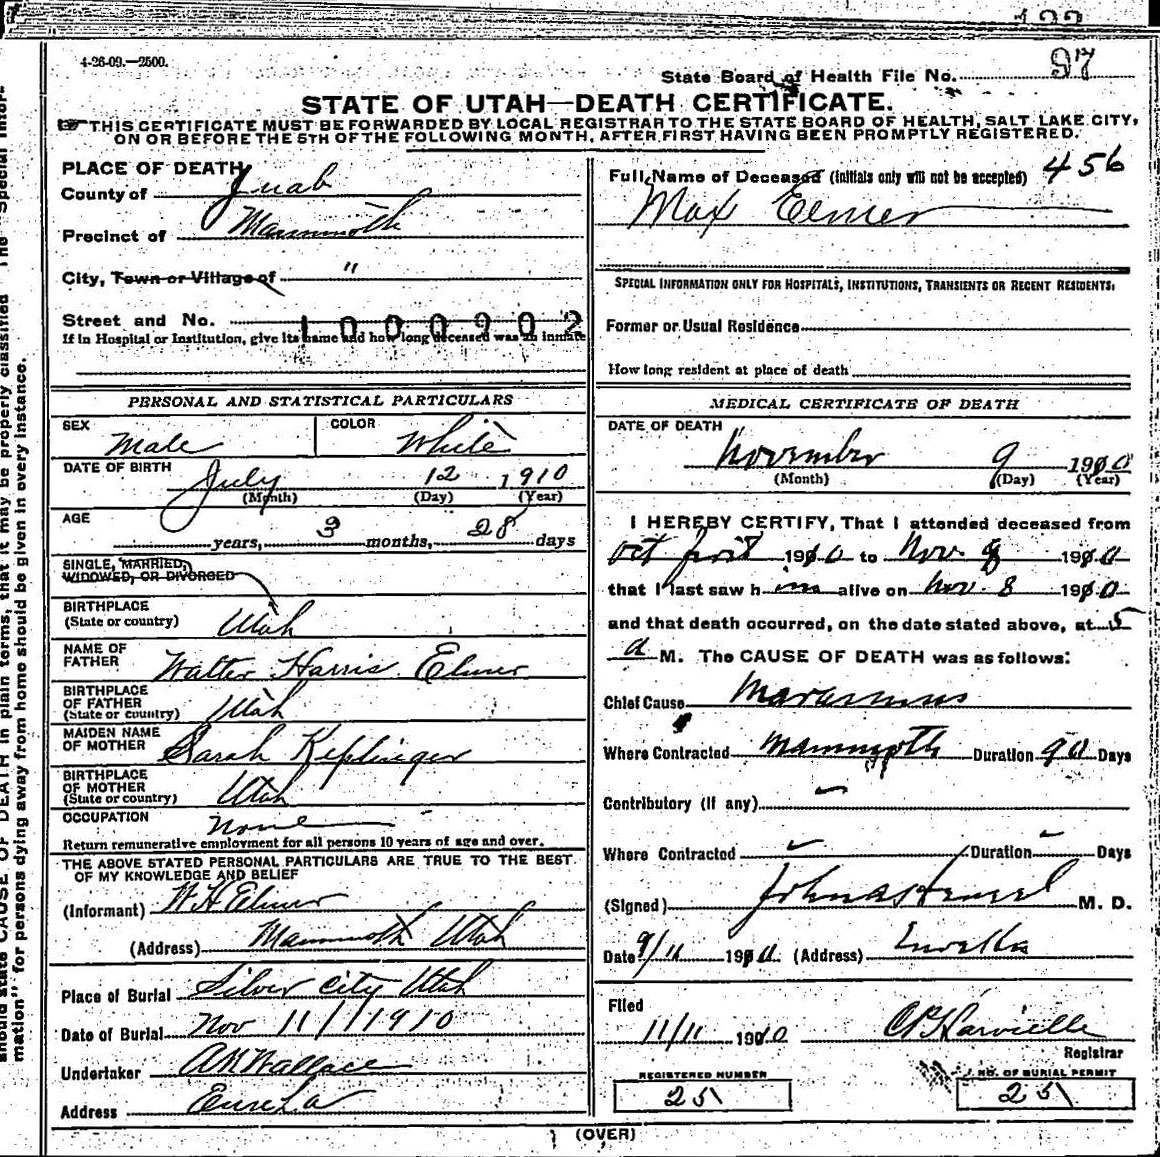 4-26-09.—2500.
State Board of Health File No. 97
STATE OF UTAH—DEATH CERTIFICATE.
THIS CERTIFICATE MUST BE FORWARDED BY LOCAL REGISTRAR TO THE STATE BOARD OF HEALTH, SALT LAKE CITY,
ON OR BEFORE THE 5TH OF THE FOLLOWING MONTH, AFTER FIRST HAVING BEEN PROMPTLY REGISTERED.
PLACE OF DEATH
County of Juab
Precinct of Mammoth
City, Town or Village of "
Street and No.
1000902
If in Hospital or Institution, give its name and how long deceased was an inmate
PERSONAL AND STATISTICAL PARTICULARS
SEX Male COLOR White
DATE OF BIRTH July 12 1910
(Month) (Day) (Year)
AGE
years, 3 months, 28 days
SINGLE, MARRIED,
WIDOWED, OR DIVORCED
BIRTHPLACE
(State or country) Utah
NAME OF
FATHER Walter Harris Elmer
BIRTHPLACE
OF FATHER
(State or country) Utah
MAIDEN NAME
OF MOTHER Sarah Keplinger
BIRTHPLACE
OF MOTHER
(State or country) Utah
OCCUPATION None
Return remunerative employment for all persons 10 years of age and over.
THE ABOVE STATED PERSONAL PARTICULARS ARE TRUE TO THE BEST
OF MY KNOWLEDGE AND BELIEF
(Informant) W H Elmer
(Address) Mammoth Utah
Place of Burial Silver City Utah
Date of Burial Nov 11 / 1910
Undertaker A N Wallace
Address Eureka
Full Name of Deceased (Initials only will not be accepted) 456
Max Elmer
SPECIAL INFORMATION ONLY FOR HOSPITALS, INSTITUTIONS, TRANSIENTS OR RECENT RESIDENTS.
Former or Usual Residence
How long resident at place of death
MEDICAL CERTIFICATE OF DEATH
DATE OF DEATH
November 9 1910
(Month) (Day) (Year)
I HEREBY CERTIFY, That I attended deceased from
Oct first 1910 to Nov. 9 1910
that I last saw him alive on Nov. 8 1910
and that death occurred, on the date stated above, at 5
a M. The CAUSE OF DEATH was as follows:
Chief Cause Marasmus
Where Contracted Mammoth Duration 90 Days
Contributory (if any)
Where Contracted Duration Days
(Signed) M. D.
Date 9/11 1910. (Address) Eureka
Filed
11/11 1910
Registrar
REGISTERED NUMBER
25
NO. OF BURIAL PERMIT
25
(OVER)
should state CAUSE OF DEATH in plain terms, that it may be properly classified The "Special Infor-
mation" for persons dying away from home should be given in every instance.